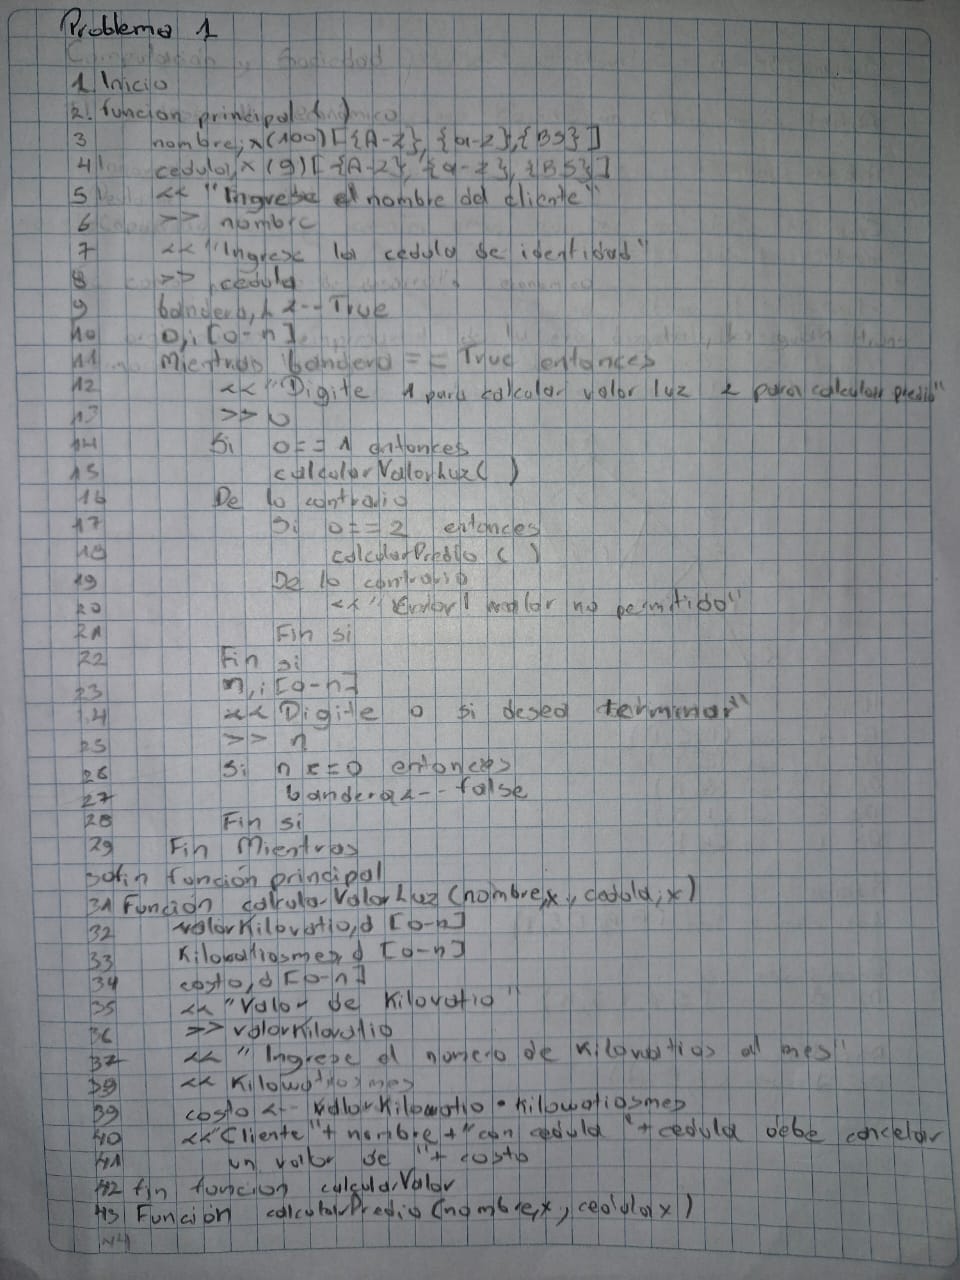 Problema 1
1. Inicio
2. funcion principal ( )
3 nombre, x (100) [ {A-Z}, {a-z}, {BS} ]
4 cedula, x (9) [ {A-Z}, {a-z}, {BS} ]
5 << "Ingrese el nombre del cliente"
6 >> nombre
7 << "Ingrese la cedula de identidad"
8 >> cedula
9 bandera, L <-- True
10 o, i [o-n]
11 Mientras bandera == True entonces
12 << "Digite 1 para calcular valor luz 2 para calcular predio"
13 >> o
14 Si o == 1 entonces
15 calcularValorLuz ( )
16 De lo contrario
17 Si o == 2 entonces
18 calcularPredio ( )
19 De lo contrario
20 << "Error! valor no permitido"
21 Fin si
22 Fin si
23 n, i [o-n]
24 << Digite 0 si desea terminar"
25 >> n
26 Si n == 0 entonces
27 bandera <-- false
28 Fin si
29 Fin Mientras
30 fin función principal
31 Función calcularValorLuz (nombre, x, cedula, x)
32 valorKilovatio, d [o-n]
33 Kilowatiosmes, d [o-n]
34 costo, d [o-n]
35 << "Valor de Kilovatio"
36 >> valorKilovatio
37 << "Ingrese el numero de Kilowatios al mes"
38 << Kilowatiosmes
39 costo <-- valorKilowatio * Kilowatiosmes
40 << "Cliente" + nombre + "con cedula " + cedula debe cancelar
41 un valor de " + costo
42 fin funcion calcularValor
43 Función calcularPredio (nombre, x, cedula x)
44